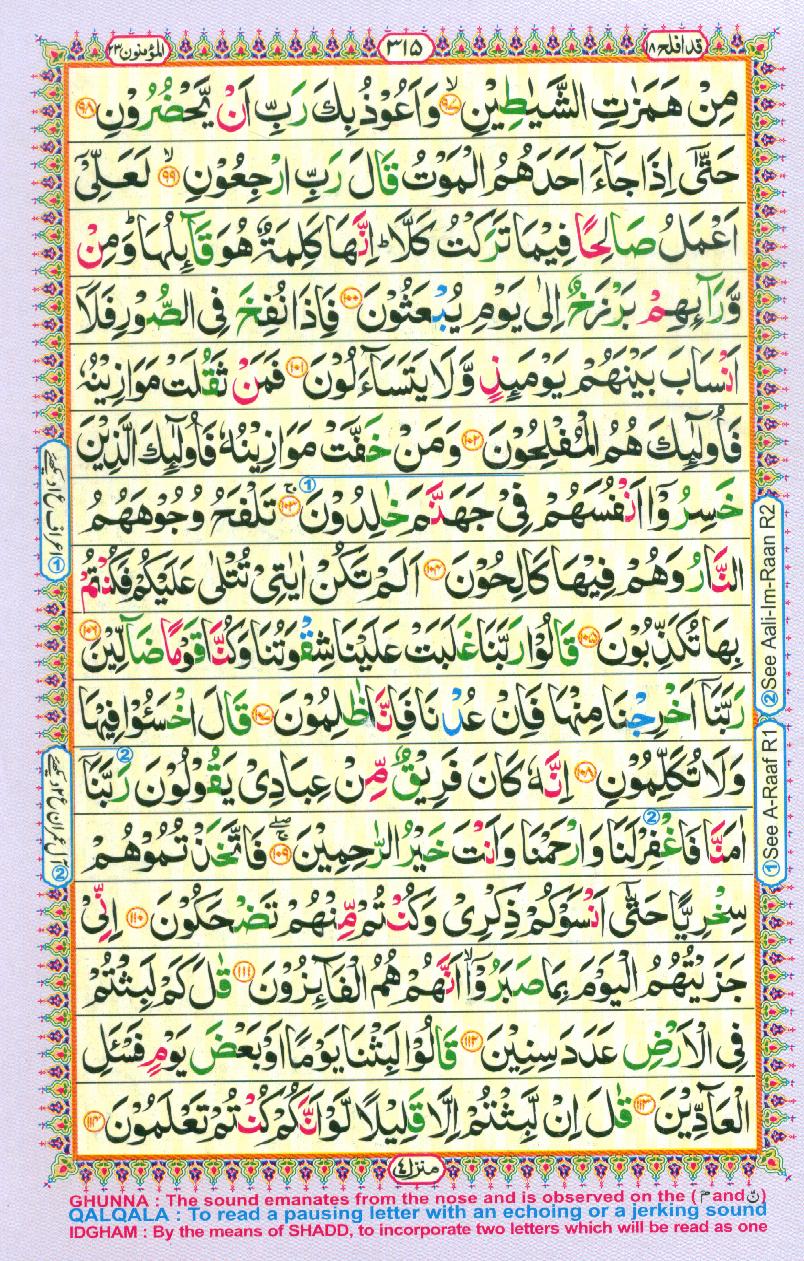 المؤمنون ٢٣
٣١٥
قد افلح ١٨
مِنْ هَمَزٰتِ الشَّيٰطِيْنِ ۙ﴿۹۷﴾ وَاَعُوْذُ بِكَ رَبِّ اَنْ يَّحْضُرُوْنِ ﴿۹۸﴾
حَتّٰۤى اِذَا جَآءَ اَحَدَهُمُ الْمَوْتُ قَالَ رَبِّ ارْجِعُوْنِ ۙ﴿۹۹﴾ لَعَلِّىْۤ
اَعْمَلُ صَالِحًا فِيْمَا تَرَكْتُ كَلَّا ؕ اِنَّهَا كَلِمَةٌ هُوَ قَآئِلُهَا ؕ وَمِنْ
وَّرَآئِهِمْ بَرْزَخٌ اِلٰى يَوْمِ يُبْعَثُوْنَ ﴿۱۰۰﴾ فَاِذَا نُفِخَ فِى الصُّوْرِ فَلَاۤ
اَنْسَابَ بَيْنَهُمْ يَوْمَئِذٍ وَّلَا يَتَسَآءَلُوْنَ ﴿۱۰۱﴾ فَمَنْ ثَقُلَتْ مَوَازِيْنُهٗ
فَاُولٰٓئِكَ هُمُ الْمُفْلِحُوْنَ ﴿۱۰۲﴾ وَمَنْ خَفَّتْ مَوَازِيْنُهٗ فَاُولٰٓئِكَ الَّذِيْنَ
خَسِرُوْۤا اَنْفُسَهُمْ فِىْ جَهَنَّمَ خٰلِدُوْنَ ۚ﴿۱۰۳﴾ ① تَلْفَحُ وُجُوْهَهُمُ
النَّارُ وَهُمْ فِيْهَا كَالِحُوْنَ ﴿۱۰۴﴾ اَلَمْ تَكُنْ اٰيٰتِىْ تُتْلٰى عَلَيْكُمْ فَكُنْتُمْ
بِهَا تُكَذِّبُوْنَ ﴿۱۰۵﴾ قَالُوْا رَبَّنَا غَلَبَتْ عَلَيْنَا شِقْوَتُنَا وَكُنَّا قَوْمًا ضَآلِّيْنَ ﴿۱۰۶﴾
رَبَّنَاۤ اَخْرِجْنَا مِنْهَا فَاِنْ عُدْنَا فَاِنَّا ظٰلِمُوْنَ ﴿۱۰۷﴾ قَالَ اخْسَئُوْا فِيْهَا
وَلَا تُكَلِّمُوْنِ ﴿۱۰۸﴾ اِنَّهٗ كَانَ فَرِيْقٌ مِّنْ عِبَادِىْ يَقُوْلُوْنَ ② رَبَّنَاۤ
اٰمَنَّا فَاغْفِرْ لَنَا وَارْحَمْنَا وَاَنْتَ خَيْرُ الرّٰحِمِيْنَ ۚۖ﴿۱۰۹﴾ ② فَاتَّخَذْتُمُوْهُمْ
سِخْرِيًّا حَتّٰۤى اَنْسَوْكُمْ ذِكْرِىْ وَكُنْتُمْ مِّنْهُمْ تَضْحَكُوْنَ ﴿۱۱۰﴾ اِنِّىْ
جَزَيْتُهُمُ الْيَوْمَ بِمَا صَبَرُوْۤا ۙ اَنَّهُمْ هُمُ الْفَآئِزُوْنَ ﴿۱۱۱﴾ قٰلَ كَمْ لَبِثْتُمْ
فِى الْاَرْضِ عَدَدَ سِنِيْنَ ﴿۱۱۲﴾ قَالُوْا لَبِثْنَا يَوْمًا اَوْ بَعْضَ يَوْمٍ فَسْـَٔلِ
الْعَآدِّيْنَ ﴿۱۱۳﴾ قٰلَ اِنْ لَّبِثْتُمْ اِلَّا قَلِيْلًا لَّوْ اَنَّكُمْ كُنْتُمْ تَعْلَمُوْنَ ﴿۱۱۴﴾
① اعراف ع ١ دیکھئے
② آل عمران ع ٢ دیکھئے
② See Aali-Im-Raan R2
① See A-Raaf R1
منزل ٤
GHUNNA : The sound emanates from the nose and is observed on the ( مّ and نّ )
QALQALA : To read a pausing letter with an echoing or a jerking sound
IDGHAM : By the means of SHADD, to incorporate two letters which will be read as one